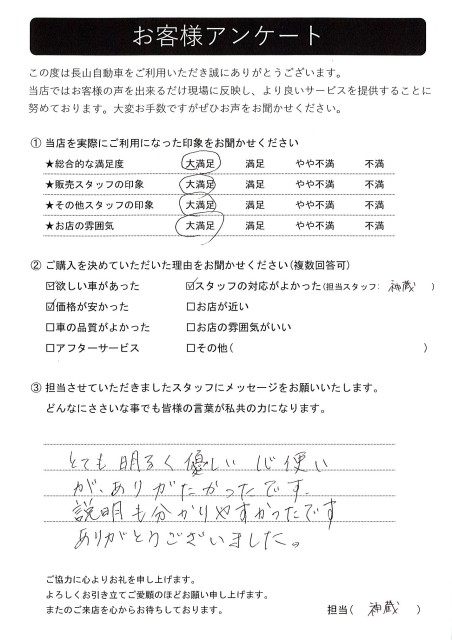 お客様アンケート
この度は長山自動車をご利用いただき誠にありがとうございます。
当店ではお客様の声を出来るだけ現場に反映し、より良いサービスを提供することに
努めております。大変お手数ですがぜひお声をお聞かせください。
① 当店を実際にご利用になった印象をお聞かせください
★総合的な満足度 大満足 満足 やや不満 不満
★販売スタッフの印象 大満足 満足 やや不満 不満
★その他スタッフの印象 大満足 満足 やや不満 不満
★お店の雰囲気 大満足 満足 やや不満 不満
② ご購入を決めていただいた理由をお聞かせください(複数回答可)
☑欲しい車があった ☑スタッフの対応がよかった(担当スタッフ: 神蔵 )
☑価格が安かった □お店が近い
□車の品質がよかった □お店の雰囲気がいい
□アフターサービス □その他( )
③ 担当させていただきましたスタッフにメッセージをお願いいたします。
どんなにささいな事でも皆様の言葉が私共の力になります。
とても明るく優しい 心使い
が、ありがたかったです.
説明も分かりやすかったです
ありがとうございました。
ご協力に心よりお礼を申し上げます。
よろしくお引き立てご愛顧のほどお願い申し上げます。
またのご来店を心からお待ちしております。 担当( 神蔵 )